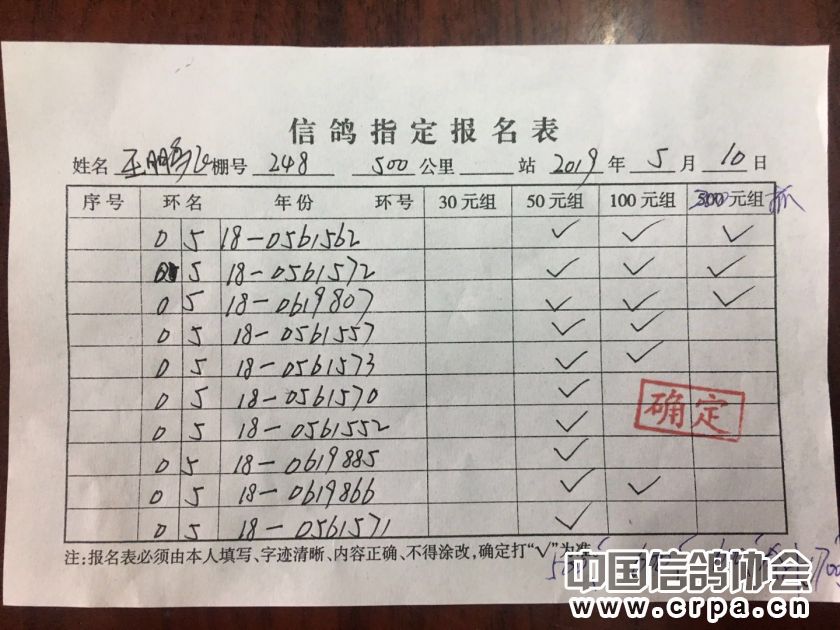 信鸽指定报名表
姓名 王鹏飞 棚号 248 500 公里 站 2019 年 5 月 10 日
序号 环名 年份 环号 30元组 50元组 100元组 元组 抓
05 18-0561562 ✓ ✓ ✓
05 18-0561572 ✓ ✓ ✓
05 18-0619807 ✓ ✓ ✓
05 18-0561557 ✓ ✓
05 18-0561573 ✓ ✓
05 18-0561570 ✓
确定
05 18-0561552 ✓
05 18-0619885 ✓
05 18-0619866 ✓ ✓
05 18-0561571 ✓
注:报名表必须由本人填写、字迹清晰、内容正确、不得涂改,确定打"√"为准
中国信鸽协会
www.crpa.cn